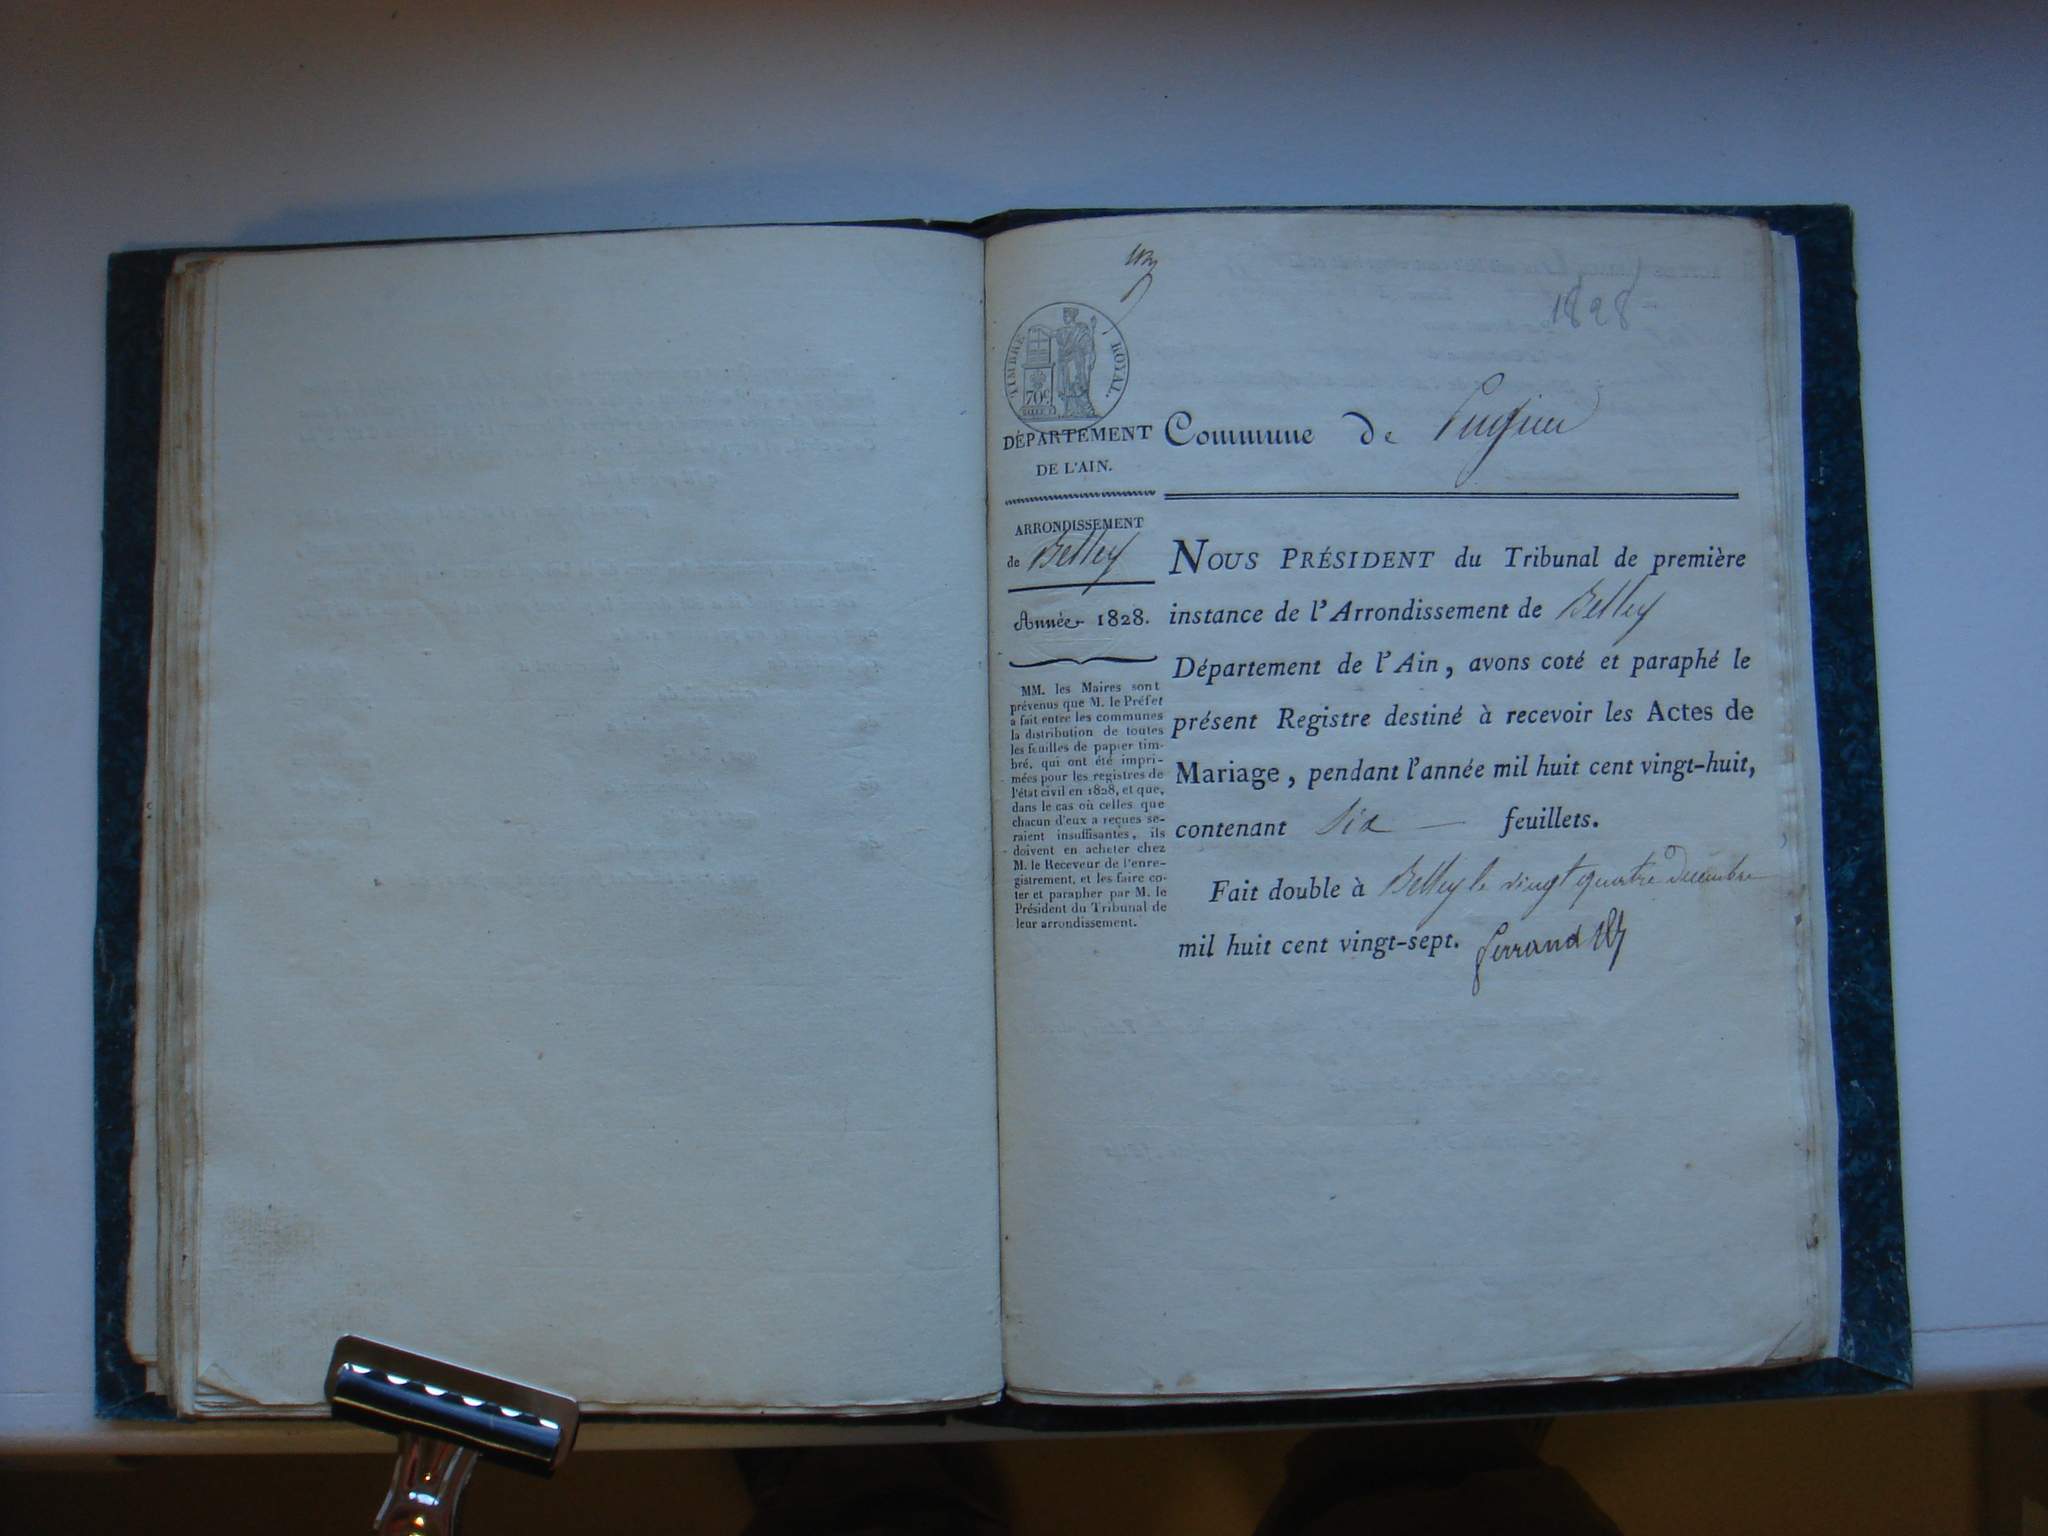 1828
TIMBRE ROYAL.
70c.
DÉPARTEMENT
DE L'AIN.
Commune de Pugieu
ARRONDISSEMENT
de Belley
Année 1828.
MM. les Maires sont
prévenus que M. le Préfet
a fait entre les communes
la distribution de toutes
les feuilles de papier tim-
bré, qui ont été impri-
mées pour les registres de
l'état civil en 1828, et que,
dans le cas où celles que
chacun d'eux a reçues se-
raient insuffisantes, ils
doivent en acheter chez
M. le Receveur de l'enre-
gistrement, et les faire co-
ter et parapher par M. le
Président du Tribunal de
leur arrondissement.
NOUS PRÉSIDENT du Tribunal de première
instance de l'Arrondissement de Belley
Département de l'Ain, avons coté et paraphé le
présent Registre destiné à recevoir les Actes de
Mariage, pendant l'année mil huit cent vingt-huit,
contenant Six — feuillets.
Fait double à Belley le vingt quatre Décembre
mil huit cent vingt-sept. ferrand